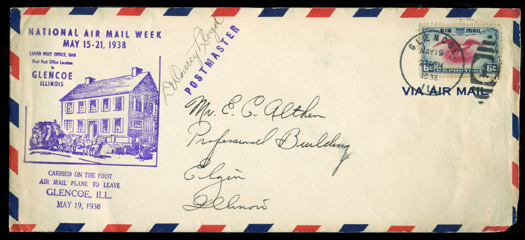 NATIONAL AIR MAIL WEEK
MAY 15-21, 1938
First Post Office Location
in
GLENCOE
ILLINOIS
CARRIED ON THE FIRST
AIR MAIL PLANE TO LEAVE
GLENCOE, ILL.
MAY 19, 1938
POSTMASTER
GLENCOE
MAY 19
1938
ILL.
AIR MAIL
6c U.S. POSTAGE 6c
VIA AIR MAIL
Mr. E. C. Althen
Professional Building
Elgin
Illinois